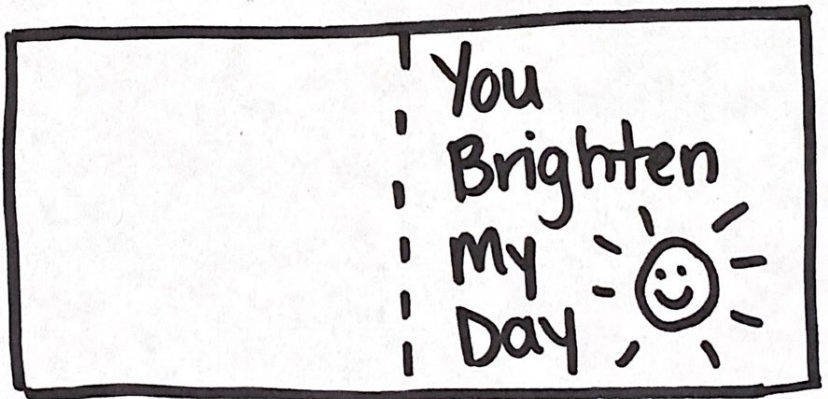 You
Brighten
My
Day